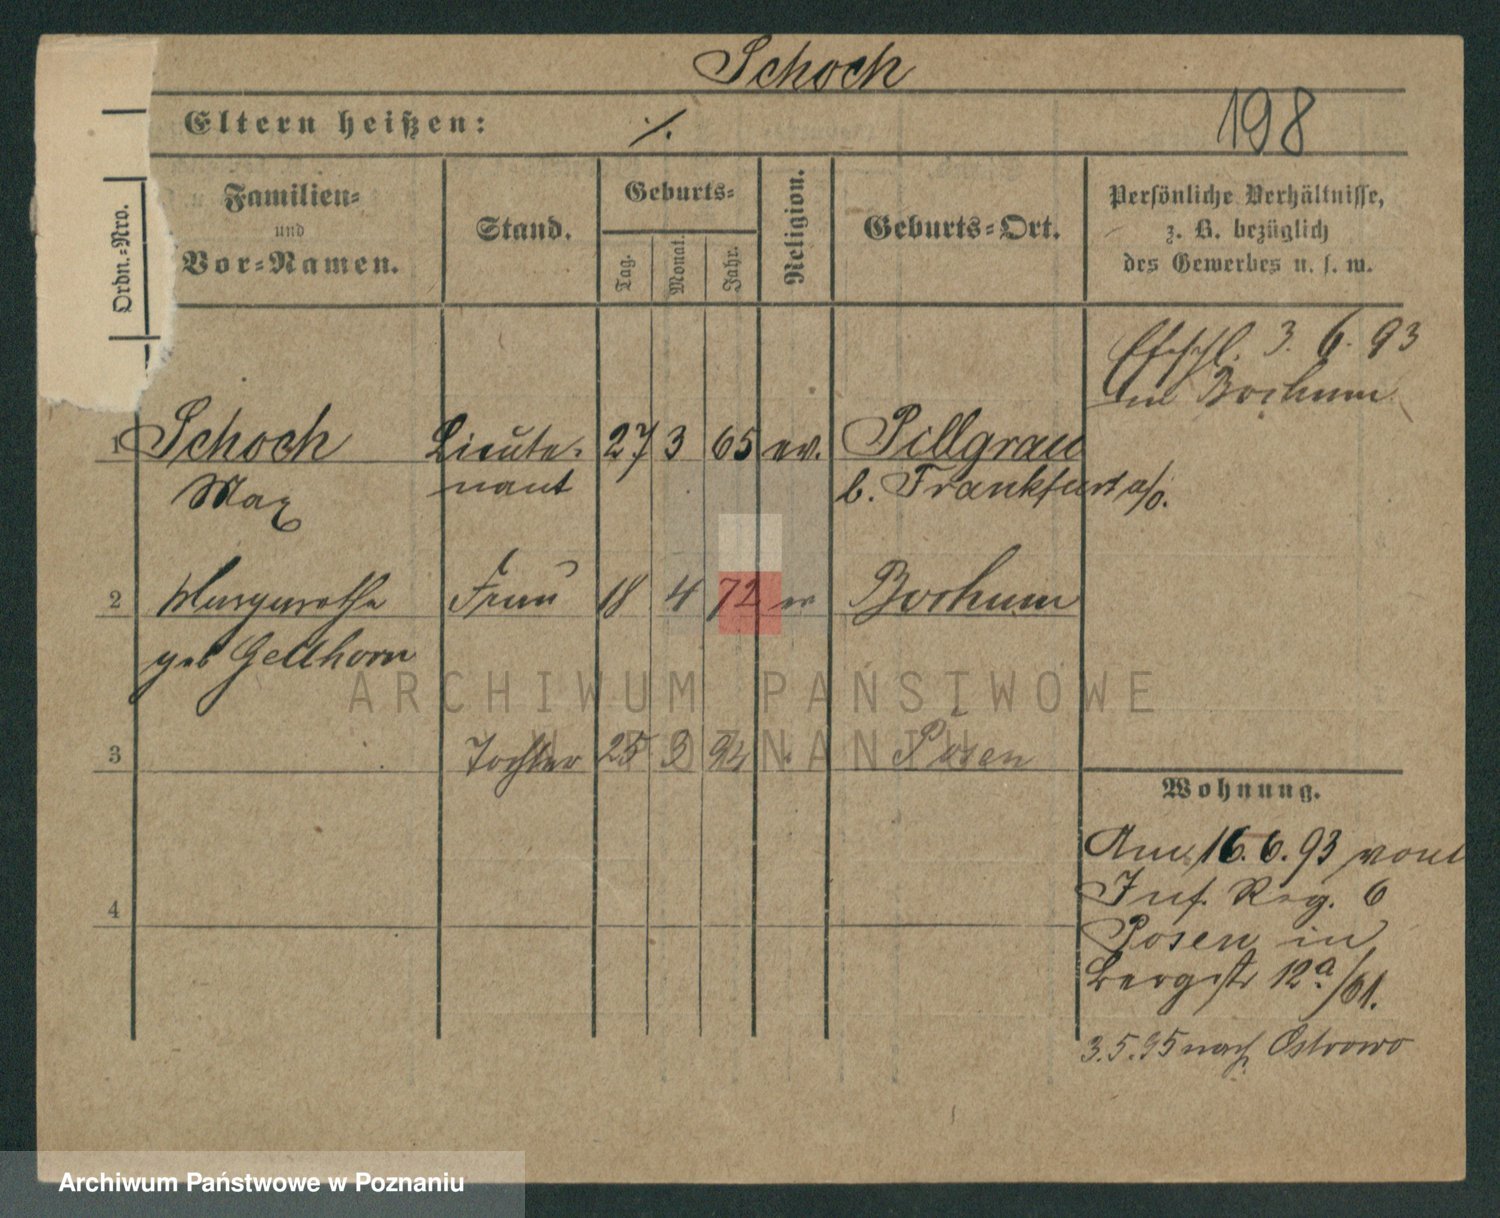 Schoch
198
Eltern heißen: ./.
Ordn.-Nro.
Familien-
und
Vor-Namen.
Stand.
Geburts-
Tag.
Monat.
Jahr.
Religion.
Geburts-Ort.
Persönliche Verhältnisse,
z. B. bezüglich
des Gewerbes u. s. w.
Ehschl. 3. 6. 93
in Bochum
1 Schoch Lieute- 27 3 65 ev. Pillgrau
Max nant b. Frankfurt a/o.
2 Margarethe Frau 18 4 72 ev Bochum
geb Gellhorn
3 Tochter 25 3 94 Posen
4
Wohnung.
Am 16. 6. 93 vom
Inf. Reg. 6
Posen in
Bergstr 12a/61.
3. 5. 95 nach Ostrowo
ARCHIWUM PAŃSTWOWE
W POZNANIU
Archiwum Państwowe w Poznaniu